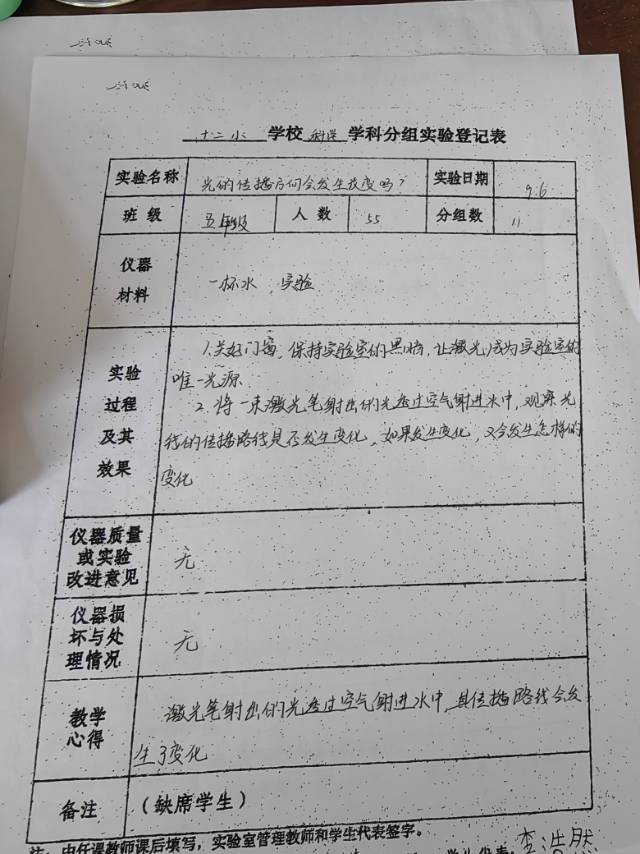 十二小 学校 科学 学科分组实验登记表
实验名称 光的传播方向会发生改变吗？ 实验日期 9.6
班 级 五年级 人 数 55 分组数 11
仪器
材料
一杯水
实验
过程
及其
效果
1.关好门窗，保持实验室的黑暗，让激光成为实验室的
唯一光源
2.将一束激光笔射出的光透过空气射进水中，观察光
线的传播路线是否发生变化，如果发生变化，又会发生怎样的
变化
仪器质量
或实验
改进意见
无
仪器损
坏与处
理情况
无
教学
心得
激光笔射出的光透过空气射进水中，其传播路线会发
生了变化
备注 （缺席学生）
注：由任课教师课后填写，实验室管理教师和学生代表签字。
学生代表：李浩然